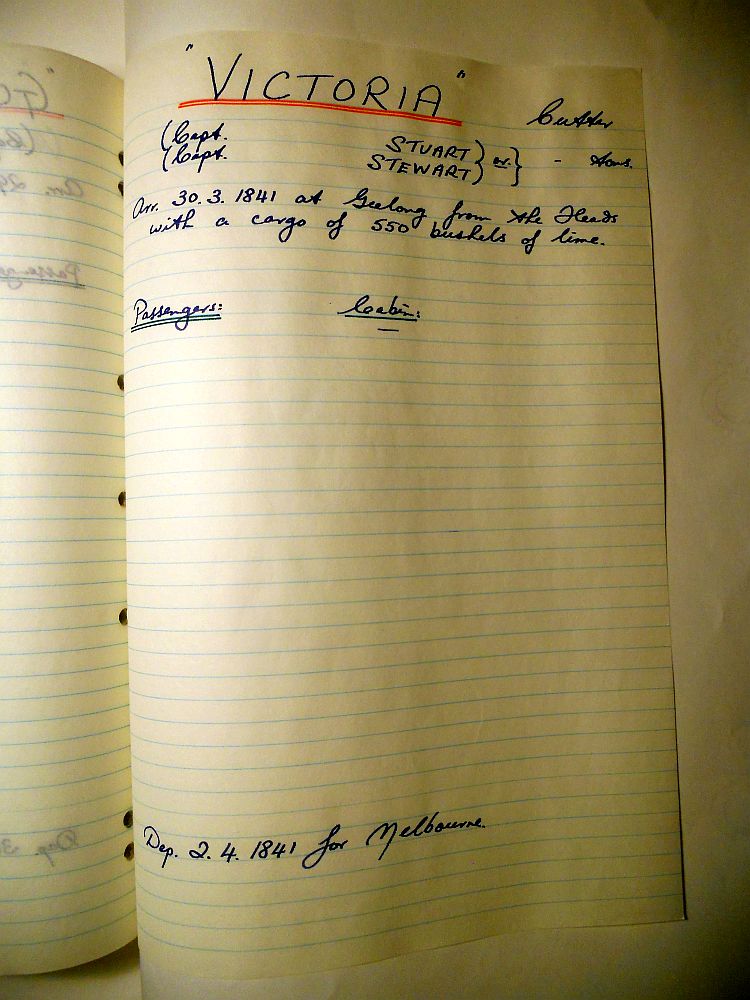 "VICTORIA"
Cutter
(Capt. STUART) or } - tons.
(Capt. STEWART)
Arr. 30.3.1841 at Geelong from the Heads
with a cargo of 550 bushels of lime.
Passengers: Cabin:
—
Dep. 2.4.1841 for Melbourne.